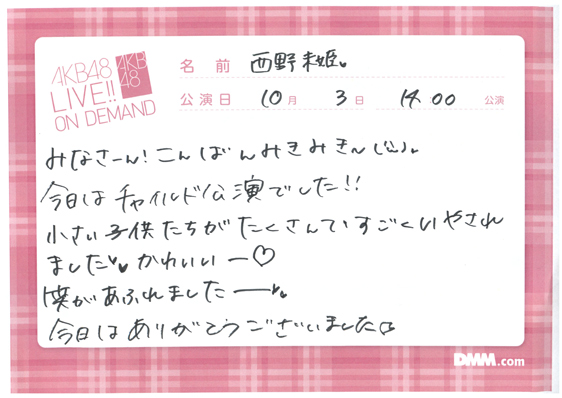 AKB48
LIVE!!
ON DEMAND
AKB
48
名前 西野未姫
公演日 10月 3日 14:00 公演
みなさーん!こんばんみきみき〜
今日はチャイルド公演でした!!
小さい子供たちがたくさんでいすごくいやされ
ました かわいいー♡
涙があふれましたー
今日はありがとうございました
DMM.com